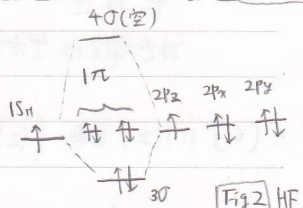 4σ(空)
1π
1S_H
2pz 2px 2py
3σ
Fig2 HF